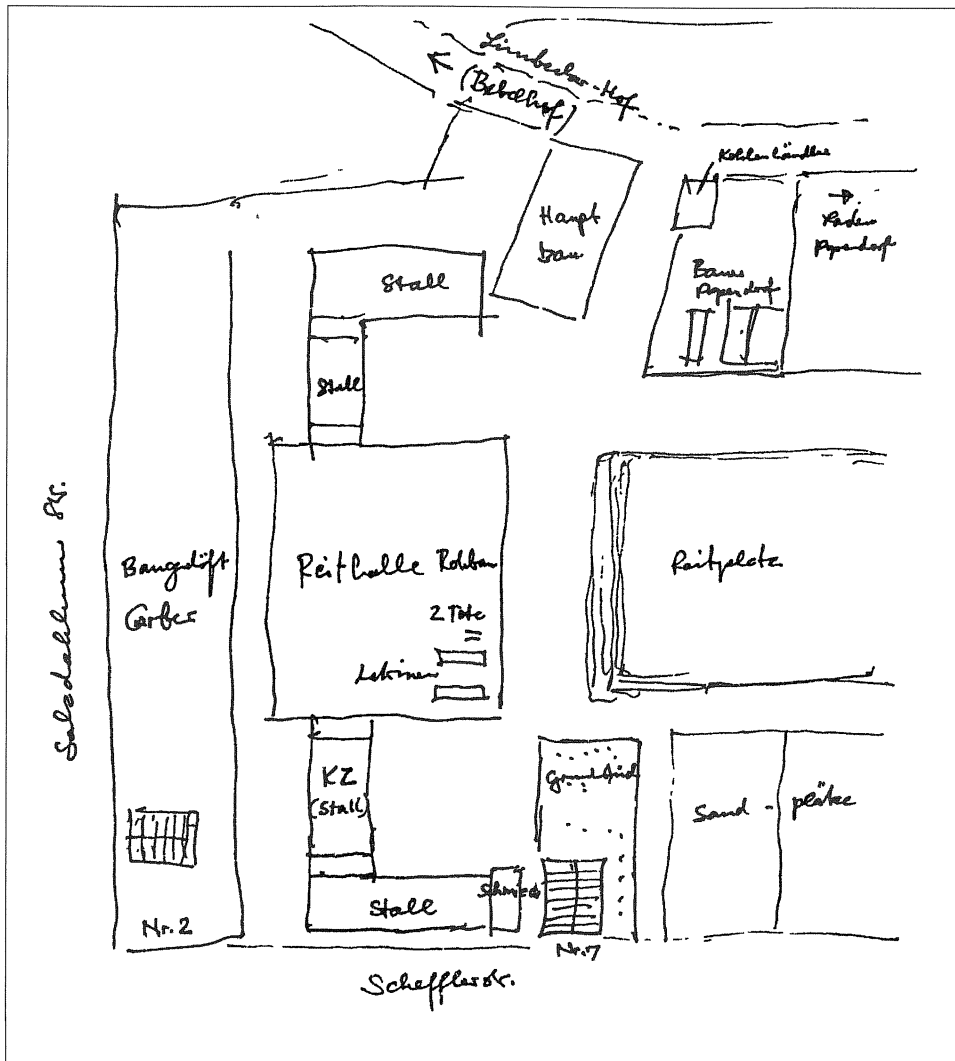 Limbecker-Hof
(Bebelhof)
Kohlenhändler
Haupt
bau
Laden
Papendorf
Stall
Bauer
Papendorf
Stall
Salzdahlumer Str.
Baugeschäft
Gerber
Reithalle Rohbau
2 Tote
Latrinen
Reitplatz
KZ
(Stall)
Sand-plätze
Stall
Schmiede
Nr. 2
Nr. 7
Schefflerstr.